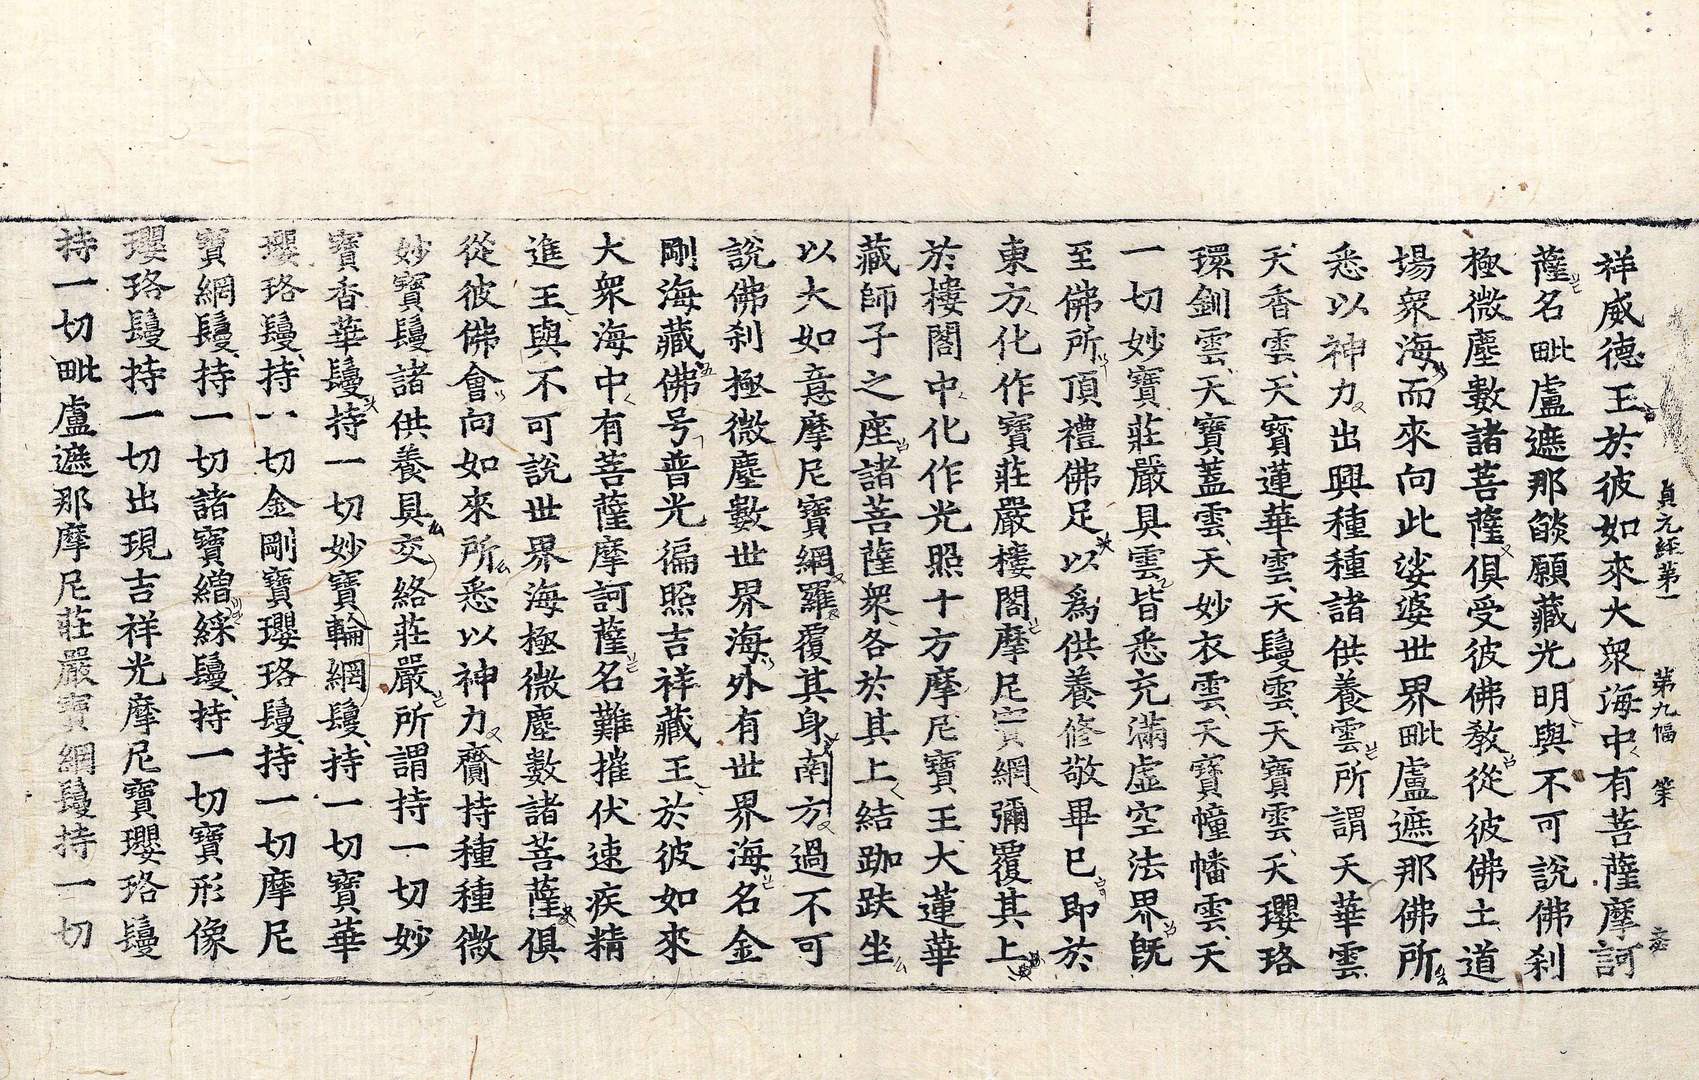 貞元経第一　第九幅　筞
祥威德王於彼如來大衆海中有菩薩摩訶
薩名毗盧遮那餤願藏光明與不可說佛刹
極微塵數諸菩薩俱受彼佛敎從彼佛土道
場衆海而來向此娑婆世界毗盧遮那佛所
悉以神力出興種種諸供養雲所謂天華雲
天香雲天寳蓮華雲天鬘雲天寶雲天瓔珞
環釧雲天寶蓋雲天妙衣雲天寶幢幡雲天
一切妙寶莊嚴具雲皆悉充滿虛空法界旣
至佛所頂禮佛足以爲供養修敬畢已即於
東方化作寶莊嚴樓閣摩尼寶網彌覆其上
於樓閣中化作光照十方摩尼寶王大蓮華
藏師子之座諸菩薩衆各於其上結跏趺坐
以大如意摩尼寶網羅覆其身南方過不可
說佛刹極微塵數世界海外有世界海名金
剛海藏佛号普光徧照吉祥藏王於彼如來
大衆海中有菩薩摩訶薩名難摧伏速疾精
進王與不可說世界海極微塵數諸菩薩俱
從彼佛會向如來所悉以神力齎持種種微
妙寶鬘諸供養具交絡莊嚴所謂持一切妙
寶香華鬘持一切妙寶輪網鬘持一切寶華
瓔珞鬘持一切金剛寶瓔珞鬘持一切摩尼
寶網鬘持一切諸寶繒綵鬘持一切寶形像
瓔珞鬘持一切出現吉祥光摩尼寶瓔珞鬘
持一切毗盧遮那摩尼莊嚴寶網鬘持一切